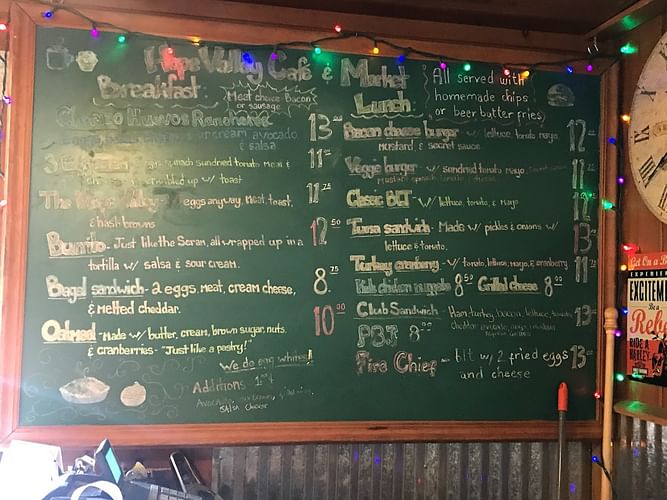 Hope Valley Café & Market
Breakfast:
Meat choice Bacon
or sausage
Chorizo Huevos Rancheros
sour cream, avocado,
& salsa
13
3 Egg
eggs, spinach, sundried tomato, Meat &
scrambled up w/ toast
11
The Hope Valley - 2 eggs anyway, meat, toast,
& hash browns
11
Burrito - Just like the Scram, all wrapped up in a
tortilla w/ salsa & sour cream.
12 50
Bagel sandwich - 2 eggs, meat, cream cheese,
& melted cheddar.
8.
Oatmeal - Made w/ butter, cream, brown sugar, nuts,
& cranberries - "Just like a pastry!"
10 00
We do egg whites!
Additions
Salsa Cheese
Lunch:
All served with
homemade chips
or beer butter fries
Bacon cheese burger - w/ lettuce, tomato, mayo,
mustard & secret sauce
12
Veggie burger - w/ sundried tomato mayo,
11
Classic BLT - w/ lettuce, tomato, & mayo
12
Tuna sandwich - Made w/ pickles & onions w/
lettuce & tomato.
13
Turkey cranberry - w/ tomato, lettuce, mayo, & cranberry
11
Kids chicken nuggets 8 50 Grilled cheese 8 00
Club Sandwich - Ham, turkey, bacon, lettuce, tomato,
cheddar, avocado
13
PBJ 8 00
Fire Chief - BLT w/ 2 fried eggs
and cheese
13
Get On a
EXPERIEN
EXCITEME
Be a
Reb
RIDE A